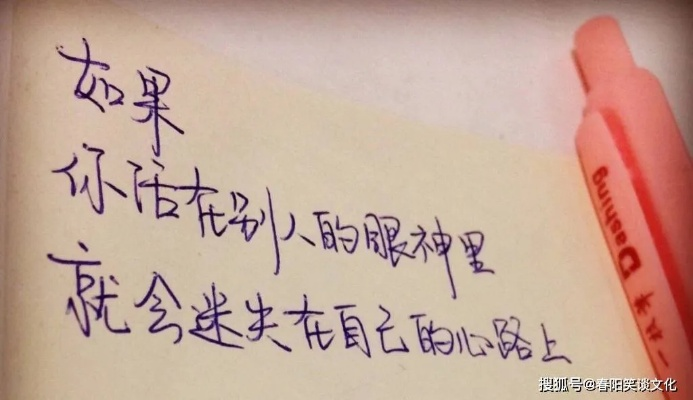 如果
你活在别人的眼神里
就会迷失在自己的心路上
Dashing
搜狐号@春阳笑谈文化